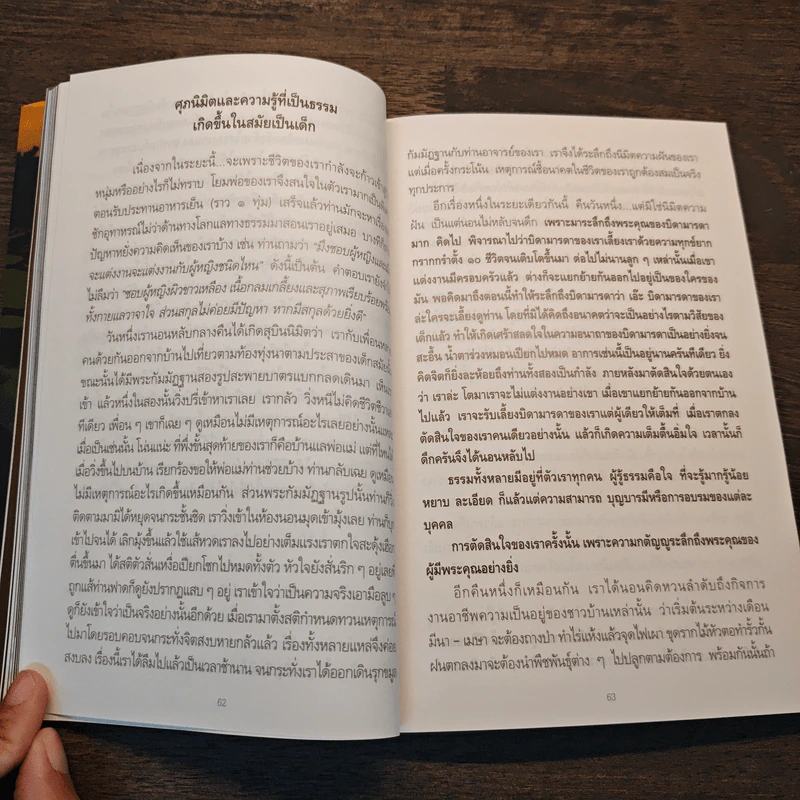 ศุภนิมิตและความรู้ที่เป็นธรรม
เกิดขึ้นในสมัยเป็นเด็ก
เนื่องจากในระยะนี้...จะเพราะชีวิตของเรากำลังจะก้าวเข้าสู่
หนุ่มหรืออย่างไรก็ไม่ทราบ โยมพ่อของเราจึงสนใจในตัวเรามากเป็น
ตอนรับประทานอาหารเย็น (ราว ๑ ทุ่ม) เสร็จแล้วท่านมักจะหา
ซักอุทาหรณ์ไม่ว่าด้านทางโลกแลทางธรรมมาสอนเราอยู่เสมอ บางที
ปัญหาหยั่งความคิดเห็นของเราบ้าง เช่น ท่านถามว่า "มึงชอบผู้หญิง
จะแต่งงานจะแต่งงานกับผู้หญิงชนิดไหน" ดังนี้เป็นต้น คำตอบเรายัง
ไม่ลืมว่า "ชอบผู้หญิงผิวขาวเหลือง เนื้อกลมเกลี้ยงและสุภาพเรียบร้อย
ทั้งกายแลวาจาใจ ส่วนสกุลไม่ค่อยมีปัญหา หากมีสกุลด้วยยิ่งดี"
วันหนึ่งเรานอนหลับกลางคืนได้เกิดสุบินนิมิตว่า เรากับเพื่อน
คนด้วยกันออกจากบ้านไปเที่ยวตามท้องทุ่งนาตามประสาของเด็กสมัย
ขณะนั้นได้มีพระกัมมัฏฐานสองรูปสะพายบาตรแบกกลดเดินมา เห็น
เข้า แล้วหนึ่งในสองนั้นวิ่งปรี่เข้าหาเราเลย เรากลัว วิ่งหนีไม่คิดชีวิต
ทีเดียว เพื่อน ๆ เขาก็เฉย ๆ ดูเหมือนไม่มีเหตุการณ์อะไรเลยอย่างนั้น
เมื่อเป็นเช่นนั้น โน่นแน่ะ ที่พึ่งขั้นสุดท้ายของเราก็คือบ้านแลพ่อแม่ แต่ที่ไหน
เมื่อวิ่งขึ้นไปบนบ้าน เรียกร้องขอให้พ่อแม่ท่านช่วยบ้าง ท่านกลับเฉย ดูเหมือน
ไม่มีเหตุการณ์อะไรเกิดขึ้นเหมือนกัน ส่วนพระกัมมัฏฐานรูปนั้นท่านก็
ติดตามมามิได้หยุดจนกระชั้นชิด เราวิ่งเข้าในห้องนอนมุดเข้ามุ้งเลย ท่านก็
เข้าไปจนได้ เลิกมุ้งขึ้นแล้วใช้แส้หวดเราลงไปอย่างเต็มแรงเราตกใจสะดุ้ง
ตื่นขึ้นมา ได้สติตัวสั่นเหงื่อเปียกโชกไปหมดทั้งตัว หัวใจยังสั่นริก ๆ อยู่เลย
ถูกแส้ท่านฟาดก็ดูยังปรากฏแสบ ๆ อยู่ เราเข้าใจว่าเป็นความจริงเอามือลูบ ๆ
ดูก็ยังเข้าใจว่าเป็นจริงอย่างนั้นอีกด้วย เมื่อเรามาตั้งสติกำหนดทวนเหตุการณ์
ไปมาโดยรอบคอบจนกระทั่งจิตสงบหายกลัวแล้ว เรื่องทั้งหลายแหล่จึงค่อย
สงบลง เรื่องนี้เราได้ลืมไปแล้วเป็นเวลาช้านาน จนกระทั่งเราได้ออกเดินรุกขมูล
62
กัมมัฏฐานกับท่านอาจารย์ของเรา เราจึงได้ระลึกถึงนิมิตความฝันของเรา
แต่เมื่อครั้งกระโน้น เหตุการณ์ชื้ออนาคตในชีวิตของเราถูกต้องสมเป็นจริง
ทุกประการ
อีกเรื่องหนึ่งในระยะเดียวกันนี้ คืนวันหนึ่ง...แต่มิใช่นิมิตความ
ฝัน เป็นแต่นอนไม่หลับจนดึก เพราะมาระลึกถึงพระคุณของบิดามารดา
มาก คิดไป พิจารณาไปว่าบิดามารดาของเราเลี้ยงเราด้วยความทุกข์ยาก
รากรากรำตั้ง ๑๐ ชีวิตจนเติบโตขึ้นมา ต่อไปไม่นานลูก ๆ เหล่านั้นเมื่อเขา
แต่งงานมีครอบครัวแล้ว ต่างก็จะแยกย้ายกันออกไปอยู่เป็นของใครของ
มัน พอคิดมาถึงตอนนี้ทำให้ระลึกถึงบิดามารดาว่า เอ๊ะ บิดามารดาของเรา
ล่ะใครจะเลี้ยงดูท่าน โดยที่มิได้คิดถึงอนาคตว่าจะเป็นอย่างไรตามวิสัยของ
เด็กแล้ว ทำให้เกิดเศร้าสลดใจในความอนาถาของบิดามารดาเป็นอย่างยิ่งจน
สะอื้น น้ำตาร่วงหมอนเปียกไปหมด อาการเช่นนี้เป็นอยู่นานครันทีเดียว ยิ่ง
คิดจิตก็ยิ่งละห้อยถึงท่านทั้งสองเป็นกำลัง ภายหลังมาตัดสินใจด้วยตนเอง
ว่า เราล่ะ โตมาเราจะไม่แต่งงานอย่างเขา เมื่อเขาแยกย้ายกันออกจากบ้าน
ไปแล้ว เราจะรับเลี้ยงบิดามารดาของเราแต่ผู้เดียวให้เต็มที่ เมื่อเราตกลง
ตัดสินใจของเราคนเดียวอย่างนั้น แล้วก็เกิดความเต็มตื้นอิ่มใจ เวลานั้นก็
ดึกครันจึงได้นอนหลับไป
ธรรมทั้งหลายมีอยู่ที่ตัวเราทุกคน ผู้รู้ธรรมคือใจ ที่จะรู้มากรู้น้อย
หยาบ ละเอียด ก็แล้วแต่ความสามารถ บุญบารมีหรือการอบรมของแต่ละ
บุคคล
การตัดสินใจของเราครั้งนั้น เพราะความกตัญญูระลึกถึงพระคุณของ
ผู้มีพระคุณอย่างยิ่ง
อีกคืนหนึ่งก็เหมือนกัน เราได้นอนคิดหวนลำดับถึงกิจการ
งานอาชีพความเป็นอยู่ของชาวบ้านเหล่านั้น ว่าเริ่มต้นระหว่างเดือน
มีนา - เมษา จะต้องถางป่า ทำไร่แห้งแล้วจุดไฟเผา ขุดรากไม้หัวตอทำรั้วกั้น
ฝนตกลงมาจะต้องนำพืชพันธุ์ต่าง ๆ ไปปลูกตามต้องการ พร้อมกันนั้นถ้า
63